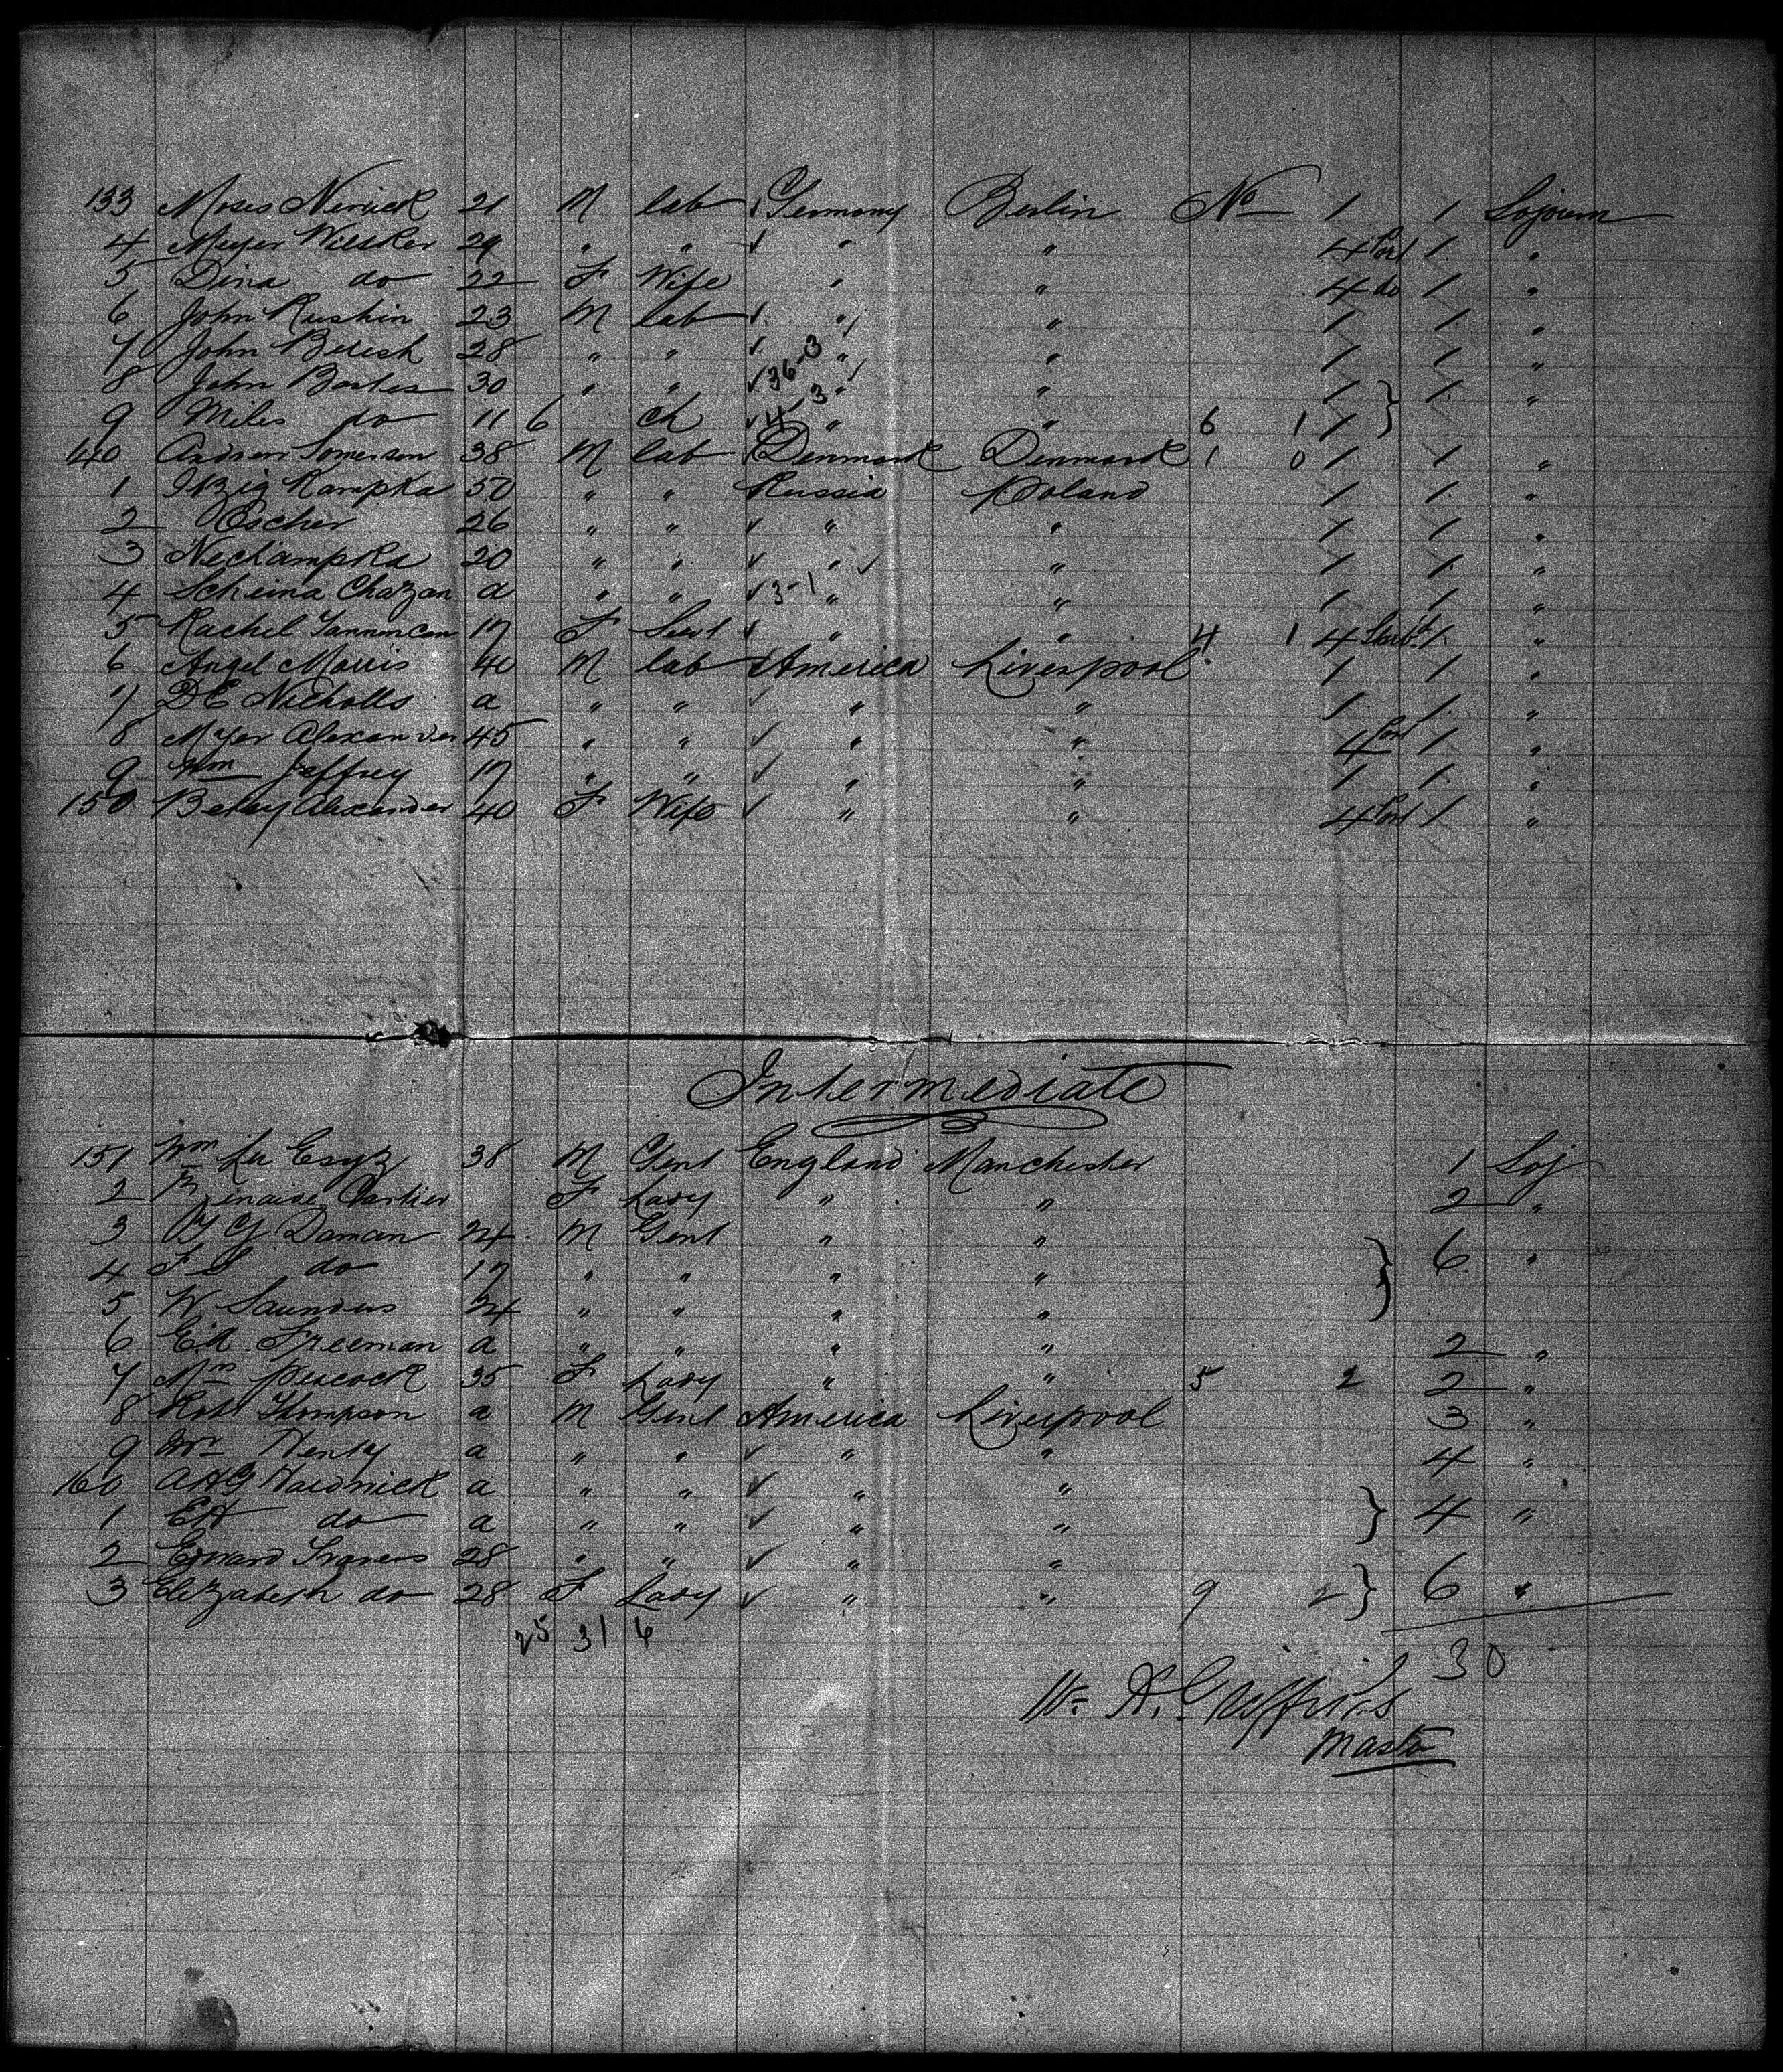 133 Moses Nerick 21 M lab Germany Berlin No 1 1 Sojourn
4 Meyer Wilsker 29 " " " " 4 Port 1 "
5 Dina do 22 F Wife " " 4 do 1 "
6 John Rushin 23 M lab " " 1 1 "
7 John Beresh 28 " " " " 1 1 "
8 John Bartes 30 " " 36-3 " " 1 1 "
9 Miles do 11 6 ch 4-3 " " 6 1 1
140 Andrew Somerson 38 M lab Denmark Denmark 1 0 1 1 "
1 Itzig Kampka 50 " " Russia Poland 1 1 "
2 Escher 26 " " " " 1 1 "
3 Nechampka 20 " " " " 1 1 "
4 Scheina Chazan a " " 3-1 " " 1 1 "
5 Rachel 17 F Servt " " 4 1 4 1 "
6 Angel Morris 40 M lab America Liverpool 1 1 "
7 D E Nicholls a " " " " 1 1 "
8 Myer Alexander 45 " " " " 4 Port 1 "
9 Wm Jeffrey 17 " " " " 1 1 "
150 Betsy Alexander 40 F Wife " " 4 Port 1 "
Intermediate
151 Wm 38 M Gent England Manchester 1 Soj
2 Cartier F Lady " " 2 "
3 Daman 24 M Gent " " 6 "
4 F S do 17 " " " "
5 W Saunders 24 " " " "
6 Ed Freeman a " " " " 2 "
7 Mrs Peacock 35 F Lady " " 5 2 2 "
8 Robt Thompson a M Gent America Liverpool 3 "
9 Mr Henty a " " " " 4 "
160 A H G Hardwick a " " " " 4 "
1 E H do a " " " "
2 Edward Travers 28 " " " "
3 Elizabeth do 28 F Lady " " 9 2 6 "
25 31 6
30
Wm H. Griffiths
Master